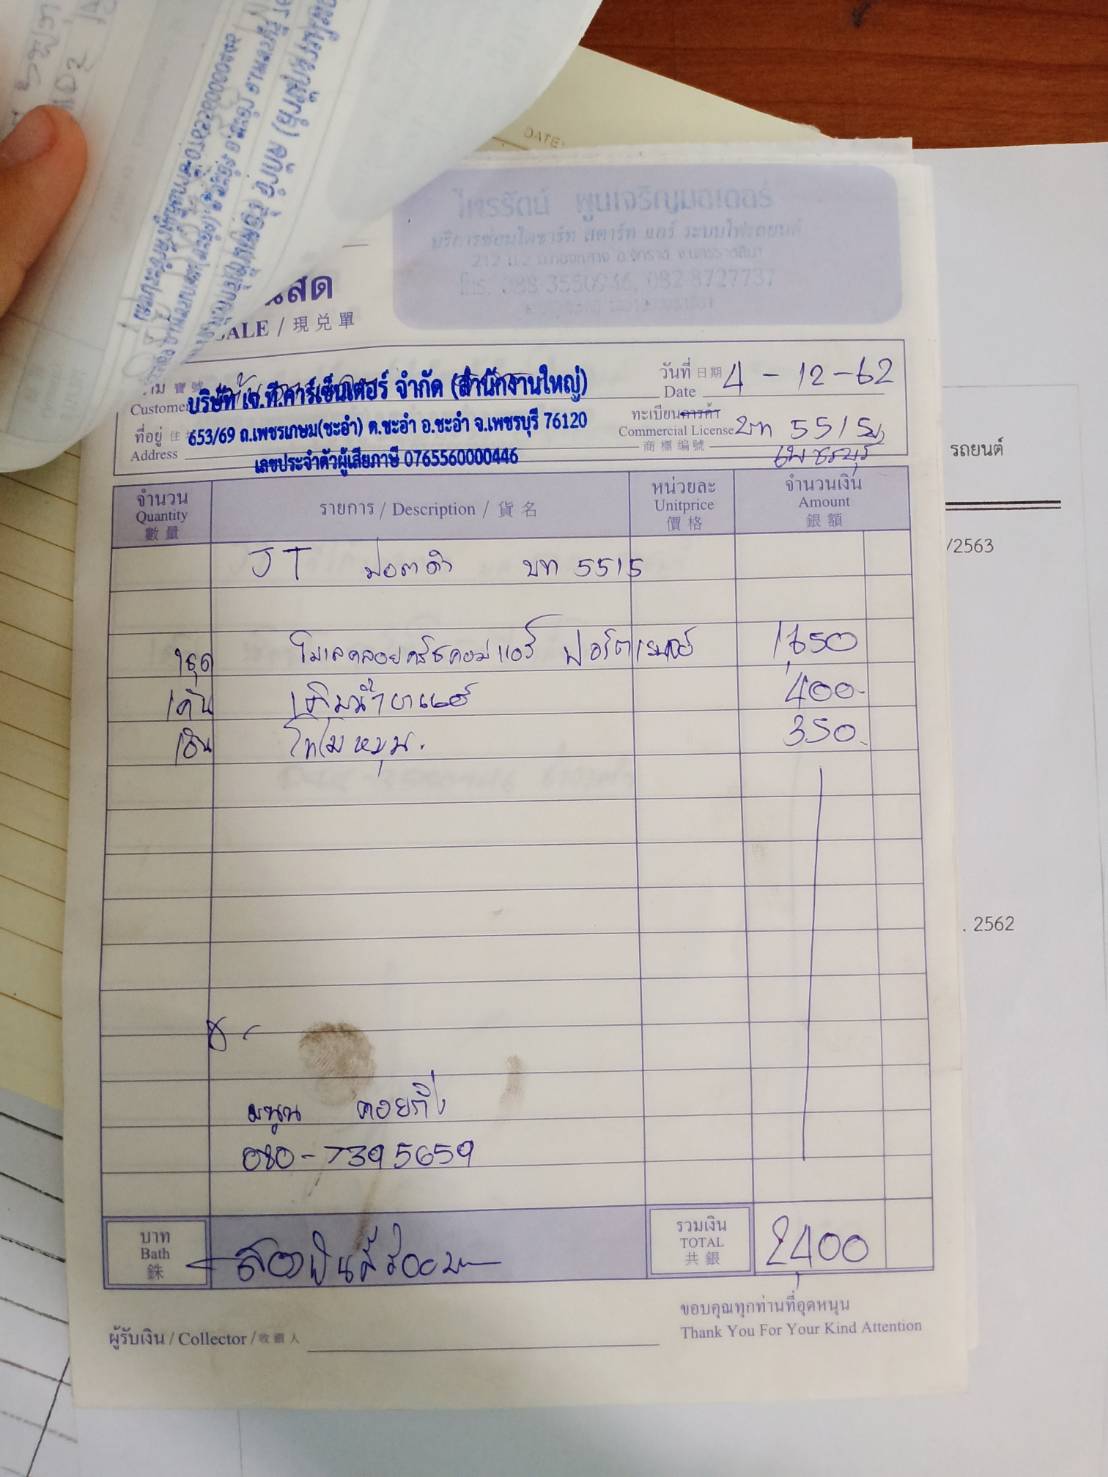 DATE:
ไพรรัตน์ พูนเจริญมอเตอร์
บริการซ่อมไดชาร์ท สตาร์ท แอร์ ระบบไฟรถยนต์
โทร. 088-3550946, 082-8727737
นสด
SALE / 現兌單
Customer บริษัท เจ.ที.คาร์เซ็นเตอร์ จำกัด (สำนักงานใหญ่)
วันที่ 日期 Date 4 - 12 - 62
ที่อยู่ Address 653/69 ถ.เพชรเกษม(ชะอำ) ต.ชะอำ อ.ชะอำ จ.เพชรบุรี 76120
ทะเบียนการค้า Commercial License 商標編號 บท 5515
เพชรบุรี
เลขประจำตัวผู้เสียภาษี 0765560000446
จำนวน Quantity 數量
รายการ / Description / 貨名
หน่วยละ Unitprice 價格
จำนวนเงิน Amount 銀額
JT บท 5515
1ชุด โมเลคลอยครัชคอมแอร์ ฟอร์ต 1,650
1คัน เติมน้ำยาแอร์ 400.-
1อัน 350.-
080-7395659
บาท Bath 銖
สองพันสี่ร้อยบาท
รวมเงิน TOTAL 共銀 2,400
ขอบคุณทุกท่านที่อุดหนุน
Thank You For Your Kind Attention
ผู้รับเงิน / Collector / 收銀人
รถยนต์
/2563
. 2562